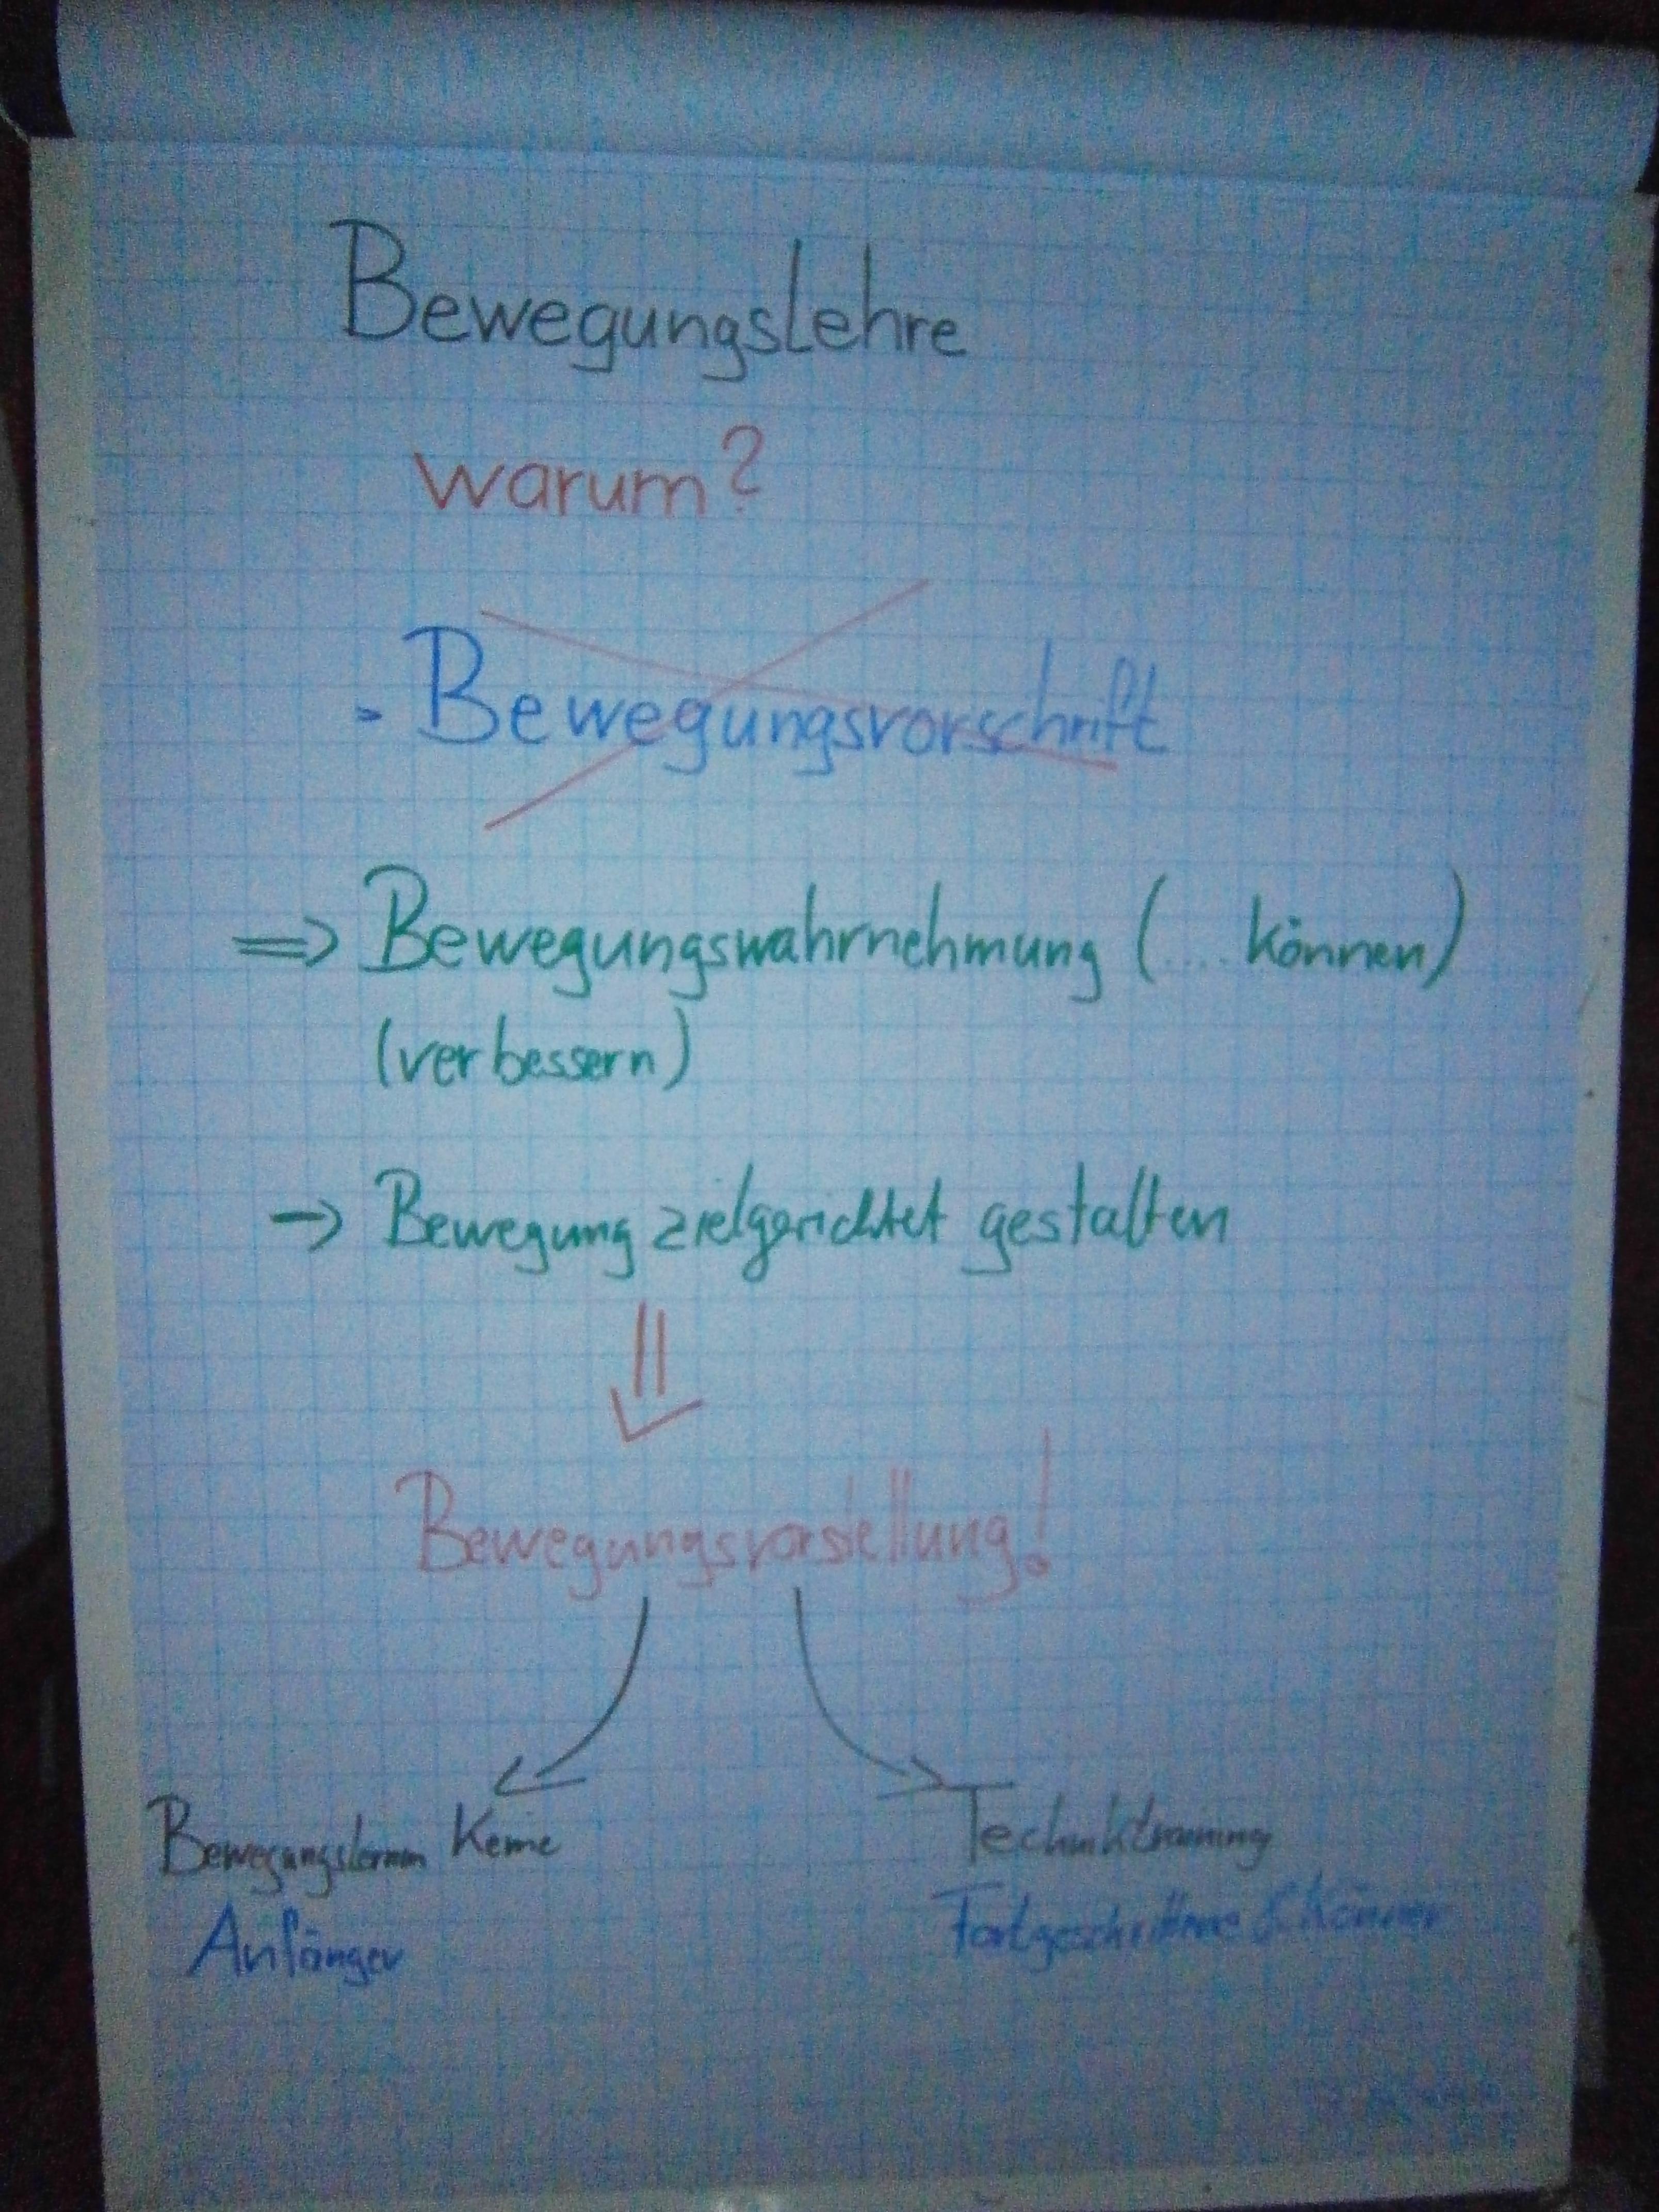 Bewegungslehre
warum?
- Bewegungsvorschrift
⇒ Bewegungswahrnehmung (.... können)
(verbessern)
→ Bewegung zielgerichtet gestalten
Bewegungsvorstellung!
Bewegungslernen Keine
Techniktraining
Anfänger
Fortgeschrittene & Könner